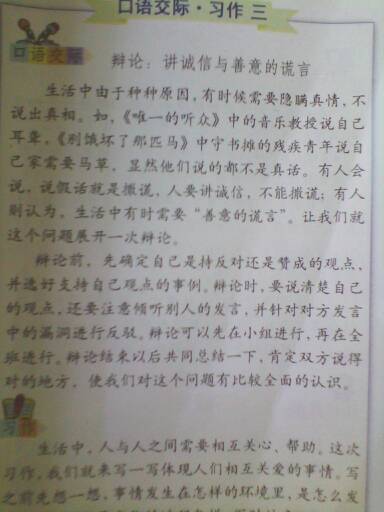 口语交际·习作 三
口语交际
辩论：讲诚信与善意的谎言
生活中由于种种原因，有时候需要隐瞒真情，不
说出真相。如，《唯一的听众》中的音乐教授说自己
耳聋，《别饿坏了那匹马》中守书摊的残疾青年说自
己家需要马草，显然他们说的都不是真话。有人会
说，说假话就是撒谎，人要讲诚信，不能撒谎；有人
则认为，生活中有时需要“善意的谎言”。让我们就
这个问题展开一次辩论。
辩论前，先确定自己是持反对还是赞成的观点，
并选好支持自己观点的事例。辩论时，要说清楚自己
的观点，还要注意倾听别人的发言，并针对对方发言
中的漏洞进行反驳。辩论可以先在小组进行，再在全
班进行。辩论结束以后共同总结一下，肯定双方说得
对的地方，使我们对这个问题有比较全面的认识。
习作
生活中，人与人之间需要相互关心、帮助。这次
习作，我们就来写一写体现人们相互关爱的事情。写
之前先想一想，事情发生在怎样的环境里，是怎么发